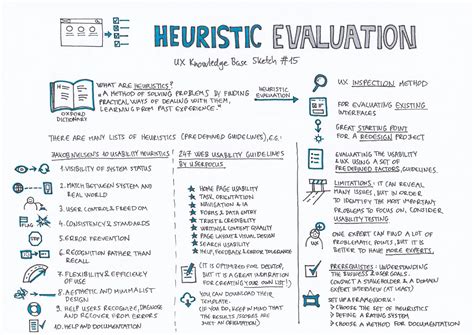 HEURISTIC EVALUATION
UX Knowledge Base Sketch #15
WHAT ARE HEURISTICS?
"A METHOD OF SOLVING PROBLEMS BY FINDING
PRACTICAL WAYS OF DEALING WITH THEM,
LEARNING FROM PAST EXPERIENCE."
OXFORD
DICTIONARY
HEURISTIC
EVALUATION
THERE ARE MANY LISTS OF HEURISTICS (PREDEFINED GUIDELINES), E.G.:
JAKOB NIELSEN'S 10 USABILITY HEURISTICS
1. VISIBILITY OF SYSTEM STATUS
2. MATCH BETWEEN SYSTEM AND
REAL WORLD
3. USER CONTROL & FREEDOM
4. CONSISTENCY & STANDARDS
5. ERROR PREVENTION
6. RECOGNITION RATHER THAN
RECALL
7. FLEXIBILITY & EFFICIENCY
OF USE
8. AESTHETIC AND MINIMALIST
DESIGN
9. HELP USERS RECOGNIZE, DIAGNOSE
AND RECOVER FROM ERRORS
10. HELP AND DOCUMENTATION
247 WEB USABILITY GUIDELINES
BY USERFOCUS
HOME PAGE USABILITY
TASK ORIENTATION
NAVIGATION & IA
FORMS & DATA ENTRY
TRUST & CREDIBILITY
WRITING & CONTENT QUALITY
PAGE LAYOUT & VISUAL DESIGN
SEARCH USABILITY
HELP, FEEDBACK & ERROR TOLERANCE
(IT IS OPTIMIZED FOR DESKTOP,
BUT IT IS A GREAT INSPIRATION
FOR CREATING YOUR OWN LIST!)
YOU CAN DOWNLOAD THEIR
TEMPLATE.
(IF YOU DO, KEEP IN MIND THAT
THE RESULTS/SCORES ARE
JUST AN ORIENTATION)
UX INSPECTION METHOD
FOR EVALUATING EXISTING
INTERFACES
GREAT STARTING POINT
FOR A REDESIGN PROJECT
EVALUATING THE USABILITY
& UX USING A SET OF
PREDEFINED FACTORS, GUIDELINES.
LIMITATIONS: IT CAN REVEAL
MANY ISSUES, BUT IN ORDER
TO IDENTIFY THE MOST IMPORTANT
PROBLEMS TO FOCUS ON, CONSIDER
USABILITY TESTING.
UX
ONE EXPERT CAN FIND A LOT OF
PROBLEMATIC POINTS, BUT IT IS
BETTER TO HAVE MORE EXPERTS.
PREREQUISITES: UNDERSTANDING
THE BUSINESS & USER GOALS.
CONDUCT A STAKEHOLDER & A DOMAIN
EXPERT INTERVIEW (AT LEAST)
SET UP A FRAMEWORK:
CHOOSE THE SET OF HEURISTICS
DEFINE A RATING SYSTEM
CHOOSE A METHOD FOR DOCUMENTATION